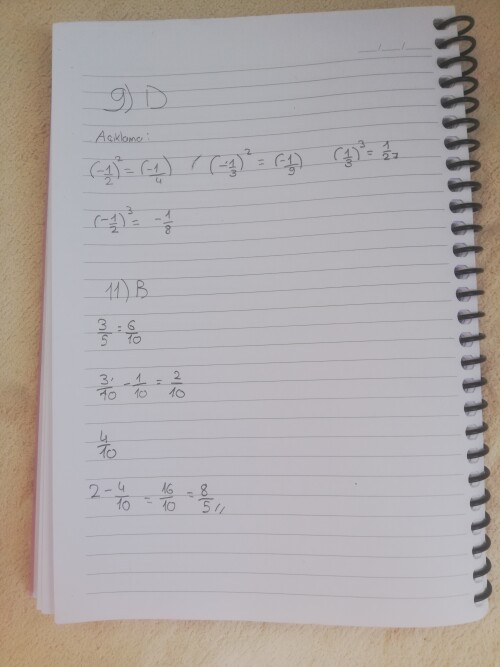 9) D
Açıklama:
(-1/2)² = (-1/4) / (-1/3)² = (-1/9) (1/3)³ = 1/27
(-1/2)³ = -1/8
11) B
3/5 = 6/10
3/10 - 1/10 = 2/10
4/10
2 - 4/10 = 16/10 = 8/5 //